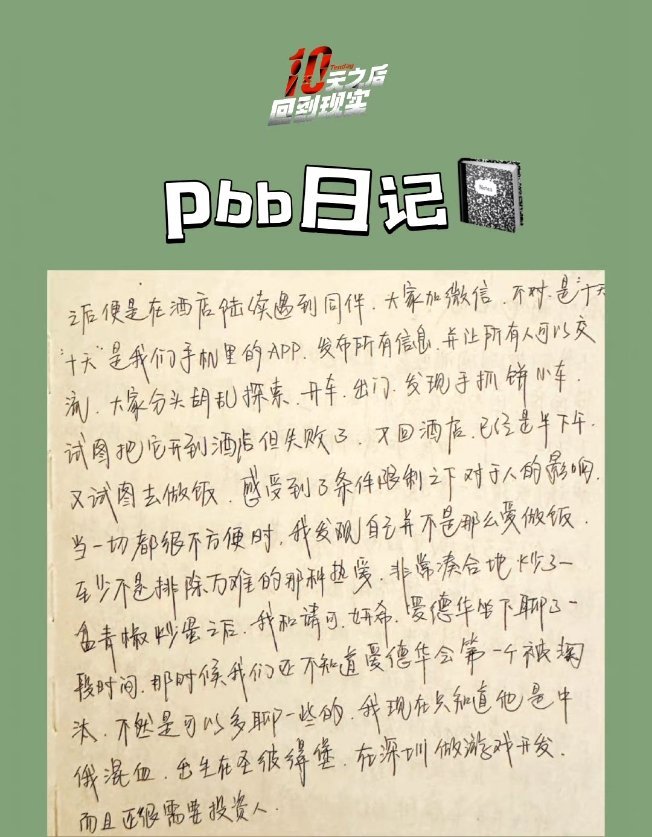 10天之后
Tenday
回到现实
pbb日记
Notes
之后便是在酒店陆续遇到同伴.大家加微信.不对.是"十天"
"十天"是我们手机里的APP.发布所有信息.并让所有人可以交
流.大家分头胡乱探索.开车.出门.发现手抓饼小车.
试图把它开到酒店但失败了.又回酒店.已经是半下午.
又试图去做饭.感受到了条件限制之下对于人的影响.
当一切都很不方便时.我发现自己并不是那么爱做饭.
至少不是排除万难的那种热爱.非常凑合地炒了一
盒青椒炒蛋之后.我和靖可.妍希.爱德华坐下聊了一
段时间.那时候我们还不知道爱德华会第一个被淘
汰.不然是可以多聊一些的.我现在只知道他是中
俄混血.出生在圣彼得堡.在深圳做游戏开发.
而且还很需要投资人.